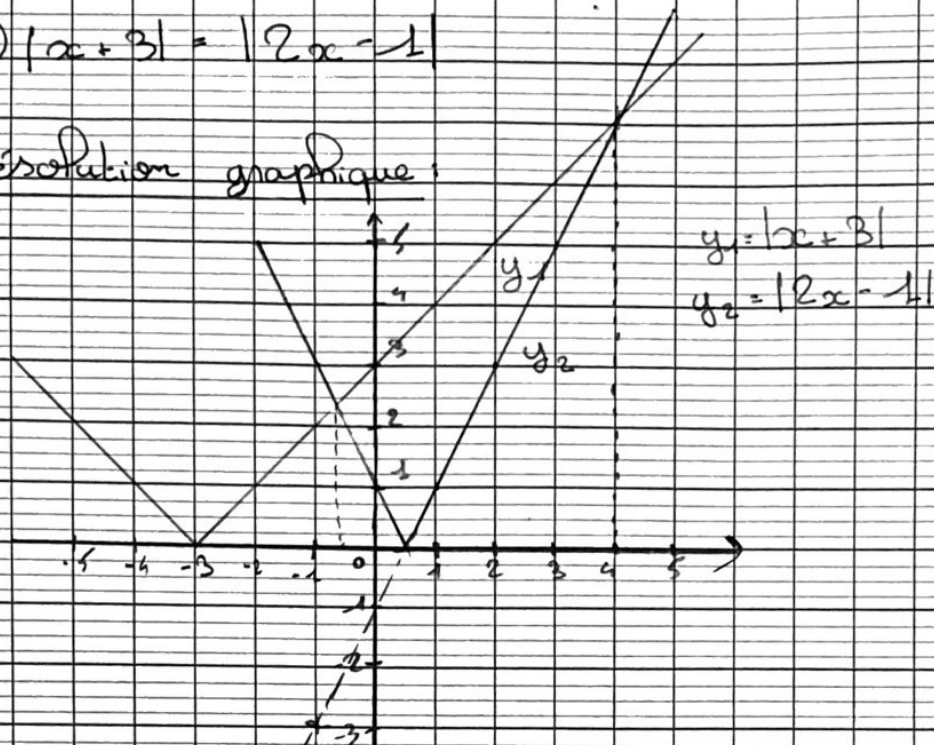 ) |x + 3| = |2x - 1|
ésolution graphique :
y1 = |x + 3|
y2 = |2x - 1|
y1
y2
5
4
3
2
1
-5 -4 -3 -2 -1 0 1 2 3 4 5
-1
-2
-3